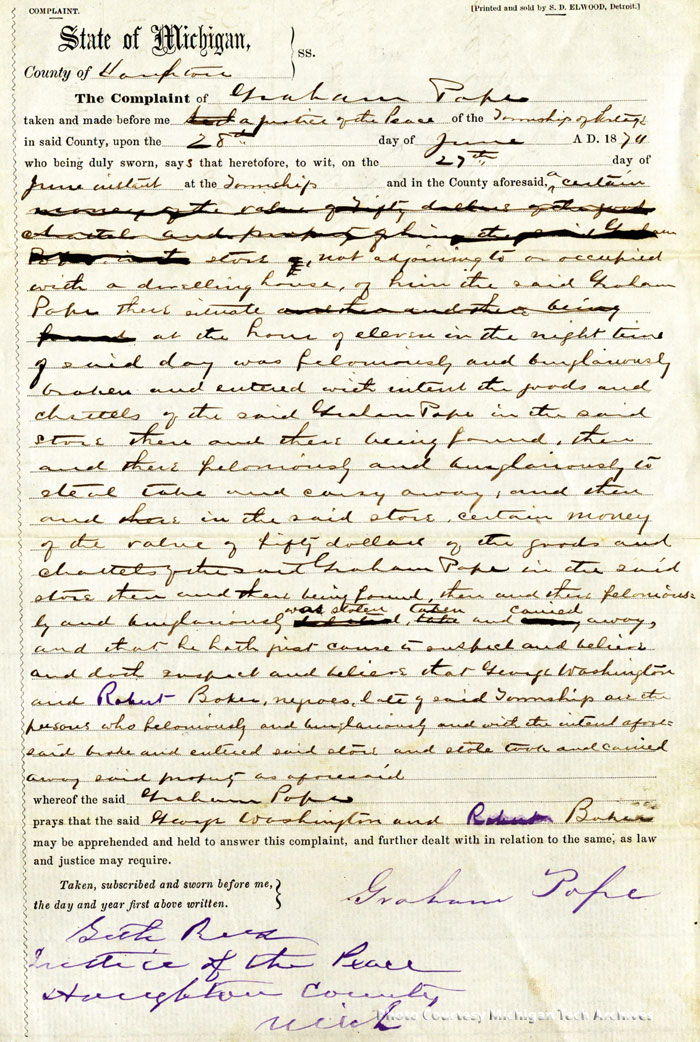 COMPLAINT.
[Printed and sold by S. D. ELWOOD, Detroit.]
State of Michigan,
ss.
County of Houghton
The Complaint of Graham Pope
taken and made before me a Justice of the Peace of the Township of Portage
in said County, upon the 28th day of June A D. 1870
who being duly sworn, says that heretofore, to wit, on the 27th day of
June instant at the Township and in the County aforesaid, a certain
money of the value of Fifty dollars of the good
chattels and property of him the said Graham
Pope, store, not adjoining to or occupied
with a dwelling house, of him the said Graham
Pope there situate and then and there being
found at the hour of eleven in the night time
of said day was feloniously and burglariously
broken and entered with intent the goods and
chattels of the said Graham Pope in the said
store then and there being found, then
and there feloniously and burglariously to
steal take and carry away, and then
and there in the said store, certain money
of the value of fifty dollars of the goods and
chattels of the said Graham Pope in the said
store then and there being found, then and there felonious-
ly and burglariously was stolen, taken and carried away,
and that he hath just cause to suspect and believe
and doth suspect and believe that George Washington
and Robert Baker, negroes, late of said Township are the
persons who feloniously and burglariously and with the intent afore=
said broke and entered said store and stole took and carried
away said property as aforesaid
whereof the said Graham Pope
prays that the said George Washington and Robert Baker
may be apprehended and held to answer this complaint, and further dealt with in relation to the same, as law
and justice may require.
Taken, subscribed and sworn before me,
the day and year first above written.
Graham Pope
Justice of the Peace
Houghton County,
Mich
Photo Courtesy Michigan Tech Archives